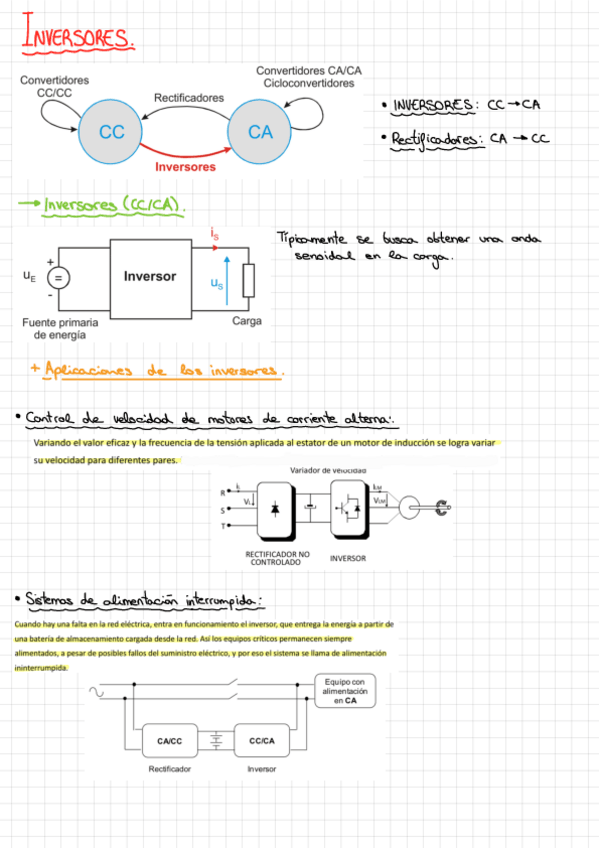 INVERSORES.
Convertidores
CC/CC
Rectificadores
Convertidores CA/CA
Cicloconvertidores
CC
CA
Inversores
• INVERSORES: CC → CA
• Rectificadores: CA → CC
→ Inversores (CC/CA).
iS
+
uE
=
-
Inversor
uS
Fuente primaria
de energía
Carga
Típicamente se busca obtener una onda
senoidal en la carga.
+ Aplicaciones de los inversores.
• Control de velocidad de motores de corriente alterna:
Variando el valor eficaz y la frecuencia de la tensión aplicada al estator de un motor de inducción se logra variar
su velocidad para diferentes pares.
Variador de velocidad
R
S
T
RECTIFICADOR NO
CONTROLADO
INVERSOR
• Sistemas de alimentación interrumpida:
Cuando hay una falta en la red eléctrica, entra en funcionamiento el inversor, que entrega la energía a partir de
una batería de almacenamiento cargada desde la red. Así los equipos críticos permanecen siempre
alimentados, a pesar de posibles fallos del suministro eléctrico, y por eso el sistema se llama de alimentación
ininterrumpida.
Equipo con
alimentación
en CA
CA/CC
CC/CA
Rectificador
Inversor